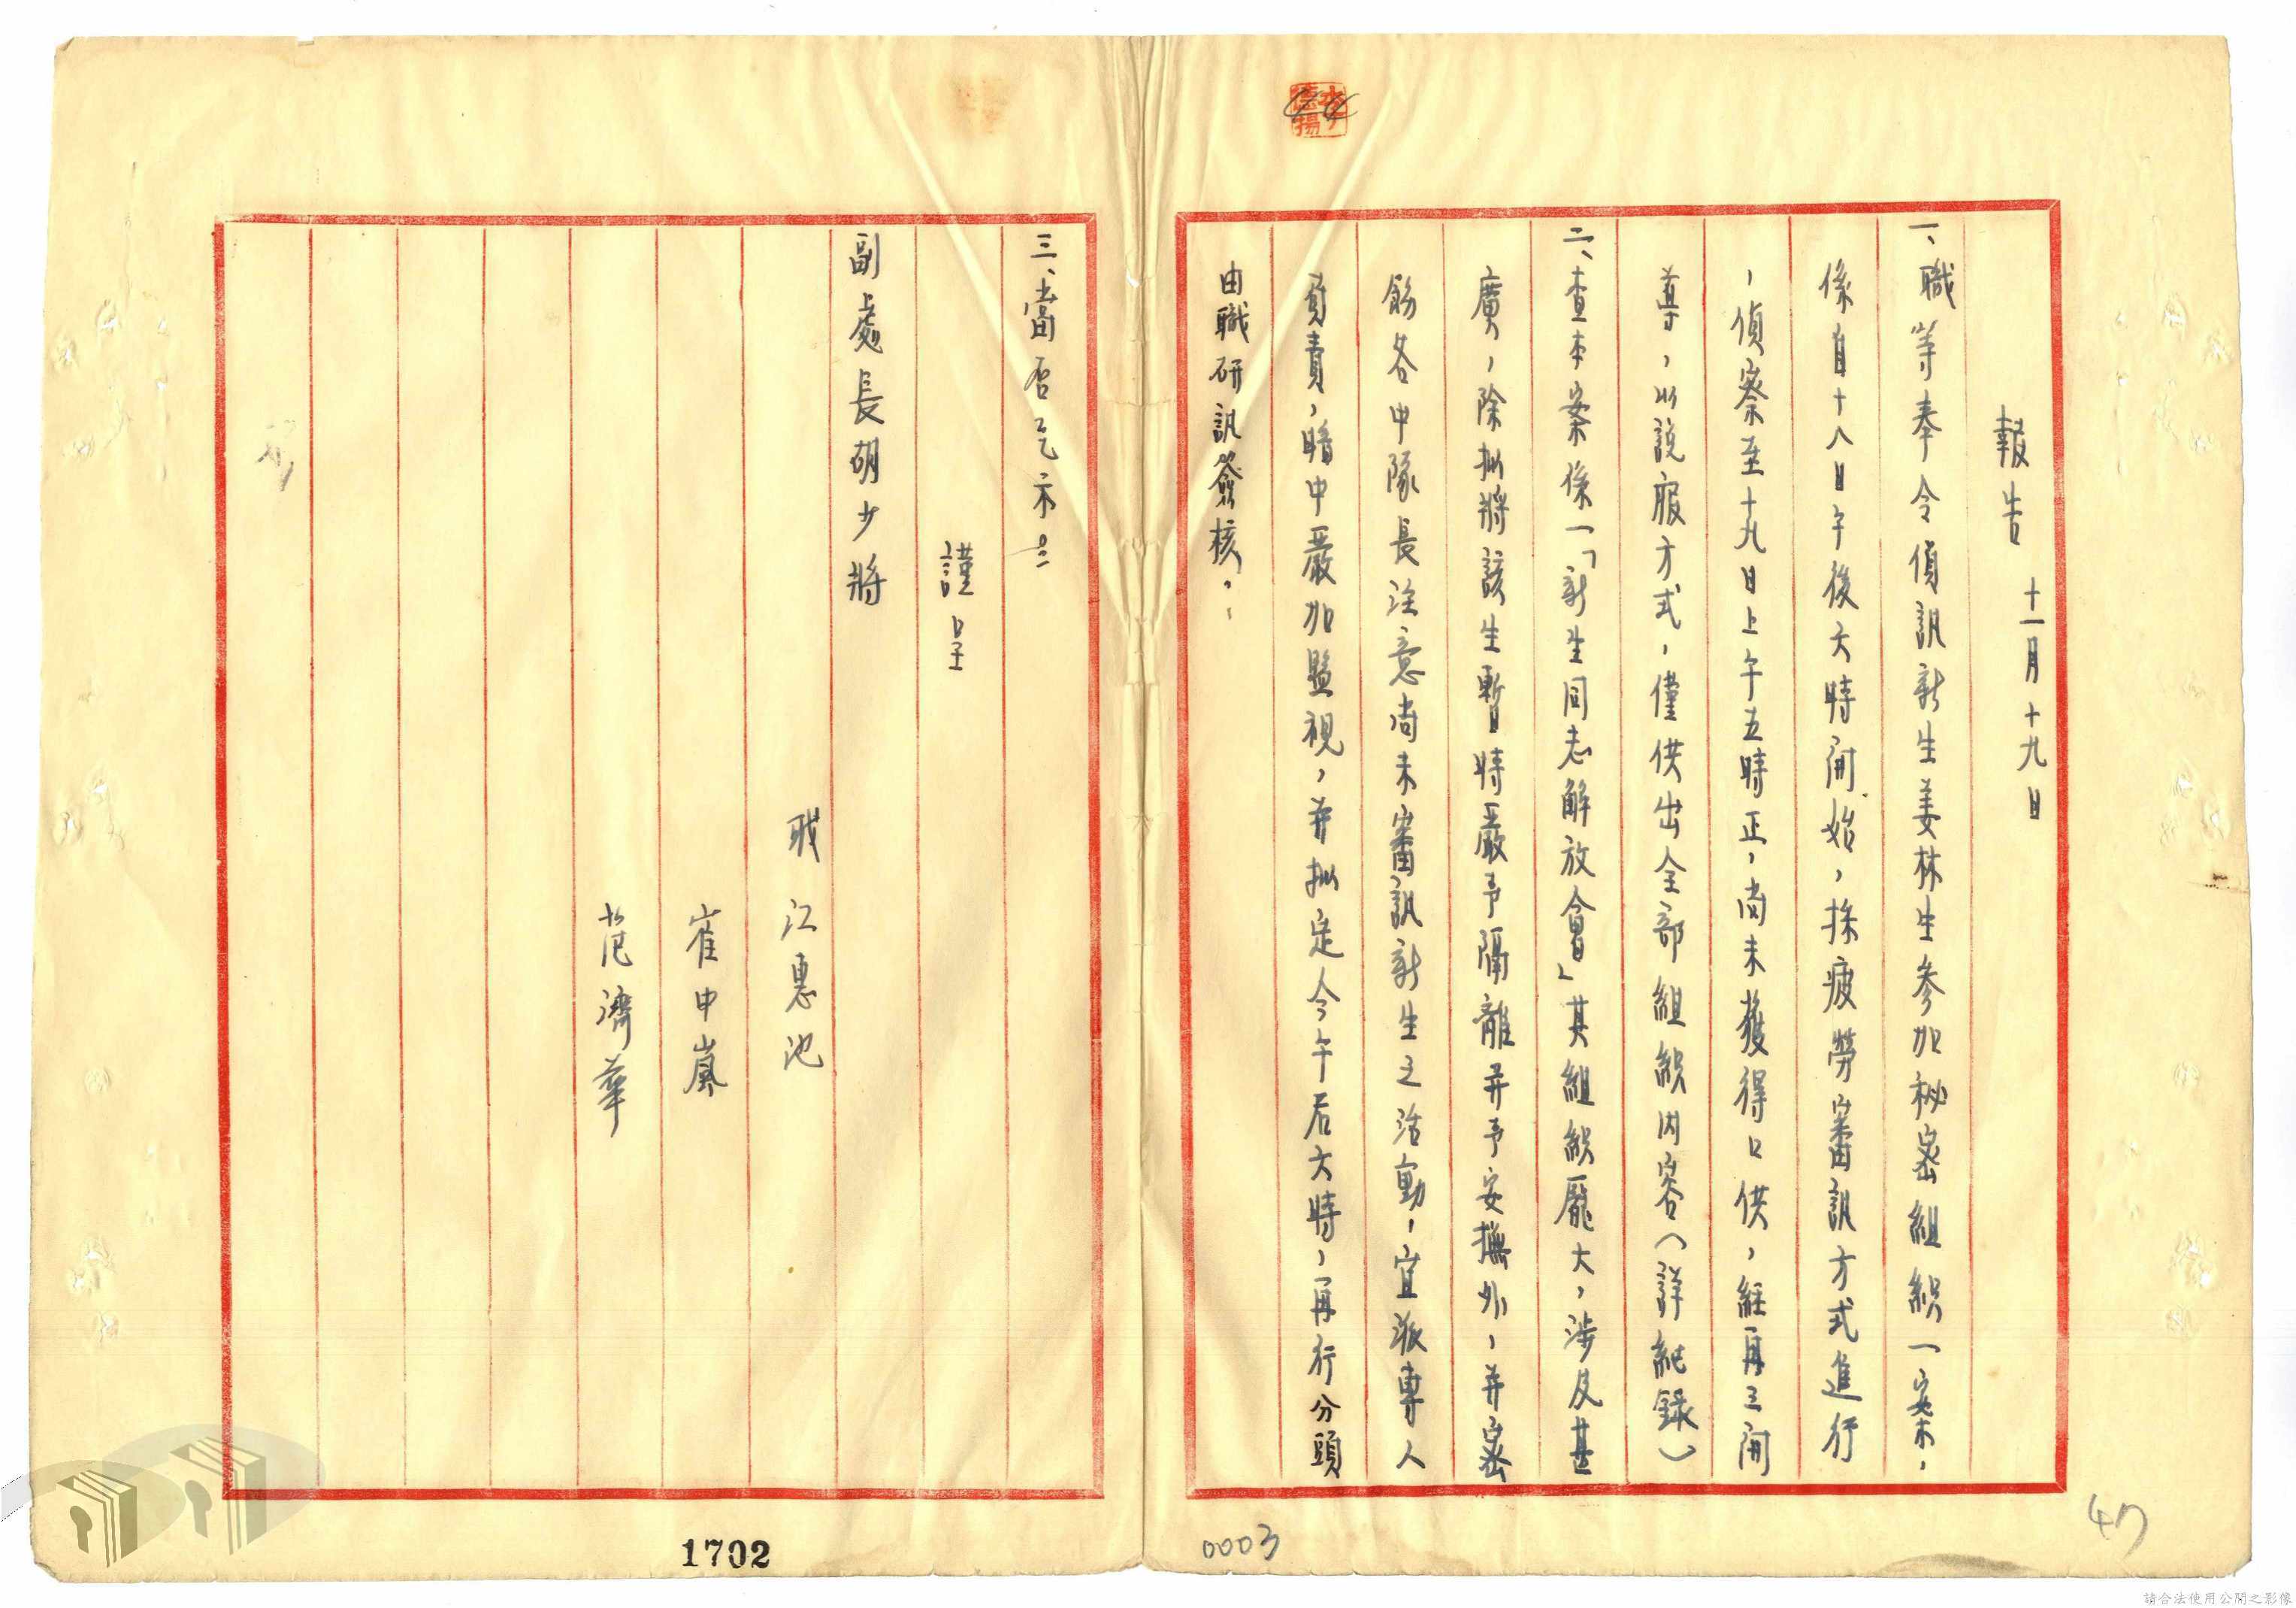 報告 十一月十九日
一、職等奉令偵訊新生姜林生參加秘密組織一案，
係自十八日午後六時開始，採疲勞審訊方式進行
，偵察至十九日上午五時正，尚未獲得口供，經再三開
導，以說服方式，僅供出全部組織內容（詳紀錄）
二、查本案係一「新生同志解放會」其組織龐大，涉及甚
廣，除擬將該生暫時嚴予隔離并予安撫外，并密
飭各中隊長注意尚未審訊新生之活動，宜派專人
負責，暗中嚴加監視，并擬定今午后六時，再行分頭
由職研訊簽核，：
三、當否乞示
謹呈
副處長胡少將
職 江惠池
崔中嵐
范濟華
1702
0003
47
請合法使用公開之影像